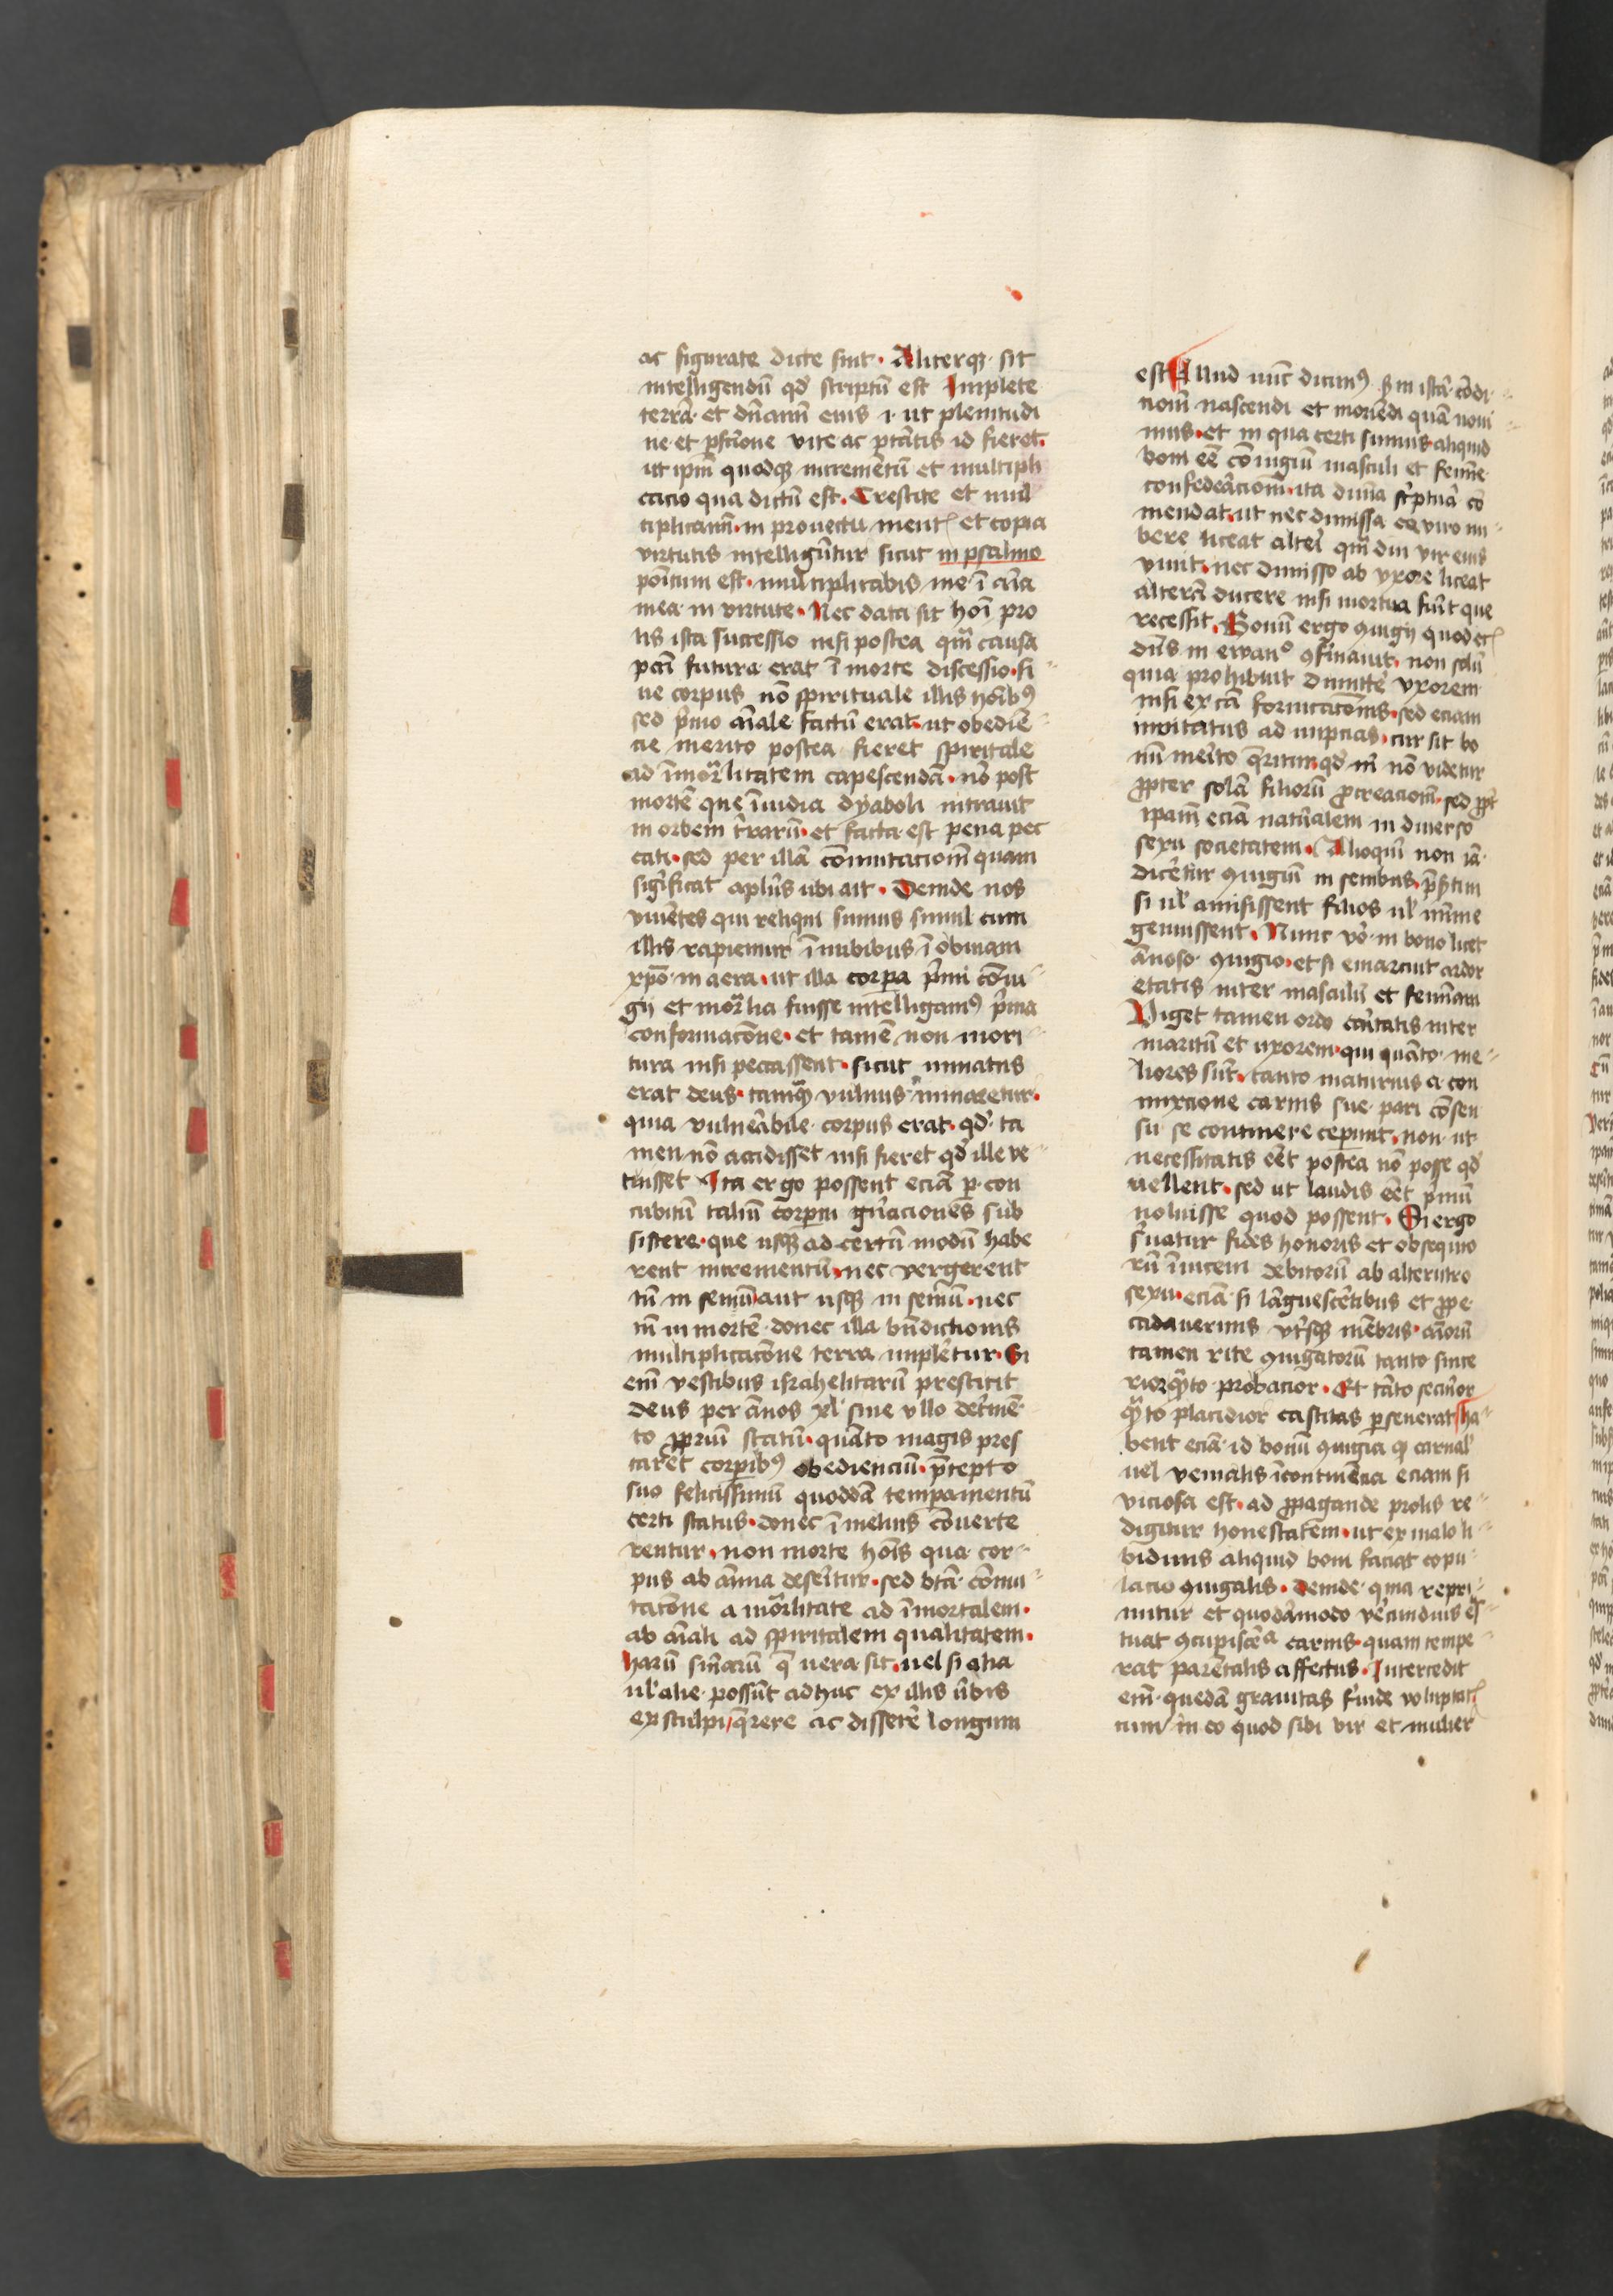 ac figurate dicte sint. Aliterqꝫ sit
intelligendū qđ scriptū est Implete
terrā et dn̄amī eius .i. ut plenitudi
ne et pfcīone vite ac ptātis id fieret.
ut ipm̄ quodqꝫ incremētū et multipli
cacio qua dictū est. Crescite et mul
tiplicamī. in prouectu mentꝭ et copia
virtutis intelligūtur sicut in psalmo
poītum est. multiplicabis me ī aīa
mea in virtute. Nec data sit hoī pro
lis ista successio nisi postea qm̄ causa
pctī futura erat ī morte discessio. si
ue corpus nō spirituale illis hoībꝰ
sed pͥmo aīale factū erat. ut obediē
cie merito postea fieret spiritale
ad īmorͣlitatem capescendā. nō post
mortē que īuidia dyaboli intrauit
in orbem tͬrarū. et facta est pena pec
cati. sed per illā cōmutacionē quam
sigͥficat aplūs ubi ait. Deinde nos
viuētes qui reliqui sumus simul cum
illis rapiemur ī nubibus ī obuiam
xpō in aera. ut illa corpa pͥmi cōiu
gij et morͣlia fuisse intelligamꝰ pͥma
conformacōne. et tamē non mori
tura nisi peccassent. sicut minatus
erat deus. tamqͣꝫ vulnus minaretur.
quia vulneͣbile corpus erat. qđ ta
men nō accidisset nisi fieret qđ ille ve
tuisset Ita ergo possent eciā p con
cubitū taliū corpm gn̄aciones sub
sistere. que usqꝫ ad certū modū habe
rent incrementū. nec vergerent
tn̄ in seniū aut usqꝫ in seniū nec
tn̄ in mortē donec illa bn̄dictionis
multiplicacōne terra impleͬtur. Si
em̄ vestibus israhelitarū prestitit
deus per ānos xlͭ sine vllo detͥmē
to ꝓpriū statū. quāto magis pres
taret corpibꝰ obedienciū. p̄cepto
suo felicissimū quoddā tempamentū
certi status. donec ī melius cōuerte
rentur. non morte hoīs qua cor
pus ab aīma deseͥtur. sed btā cōmu
tacōne a morͣlitate ad īmortalem.
ab aīali ad spiritalem qualitatem.
harū sn̄iarū q̄ uera sit. uel si alia
ul alie possūt adhuc ex illis ūbis
exsculpi/ q̄rere ac disserē longum
est Aliud nūc dicimꝰ. sm̄ istā cōdi
cionē nascendi et moriēdi quā noui
mus. et in qua certi sumus aliquid
boni eē cōiugiū masculi et feīne
confedeācionē. ita diuīa scͥptuͣ cō
mendat. ut nec dimissa ea viro nu
bere liceat alteͥ qm̄ diu vir eius
viuit. nec dimisso ab vxore liceat
alterā ducere nisi mortua fuīt que
recessit. Bonū ergo ꝯiugij quod etꝭ
dn̄s in ewanᵒ ꝯfirmauit. non solū
quia prohibuit dimitte vxorem
nisi ex cā fornicacōnis. sed eciam
inuitatus ad nupcias. cur sit bo
nū meͥto q̄ritur. qđ mͥ nō videtur
ꝓpter solā filiorū ꝓcreacionē. sed ꝓpͭ
ipam eciā natūalem in diuerso
sexu societatem. Alioquī non iā
diceͬtur ꝯiugiū in senibus. p̄s̄tim
si ul amisissent filios ul mīme
genuissent. Nunc vͦo in bono licet
ānoso ꝯiugio. et si emarcuit ardor
etatis inter masculū et feminam
Viget tamen ordo caͥtatis inter
maritū et uxorem. qui quāto me
liores sūt. tanto maturius a con
mixcione carnis sue pari cōsen
su se continere ceperunt. non ut
necessitatis eēt postea nō posse qđ
uellent. sed ut laudis eēt pͥmū
noluisse quod possent. Si ergo
suatur fides honoris et obsequio
rū īuicem debitorū ab alterutro
sexu. eciā si lāguescētibus et ꝓpe
cadauerinis vtͬsqꝫ mēbris. aīorū
tamen rite ꝯiugatorū tanto since
rior qͣto probacior. Et tāto securͥor
qͣto placidior castitas pseuerat ha
bent eciā id bonū ꝯiugia qͥ carnalͥ
uel venialis īcontinēcia eciam si
viciosa est. ad ꝓpagande prolis re
digitur honestatem. ut ex malo li
bidinis aliquid boni faciat copu
lacio ꝯiugalis. Deinde quia repri
mitur et quodāmodo veͬcundius eſ
tuat ꝯcupiscēͣ carnis. quam tempe
rat parentalis affectus. Intercedit
em̄ quedā grauitas fͬuide voluptatꝭ
cum in eo quod sibi vir et mulier